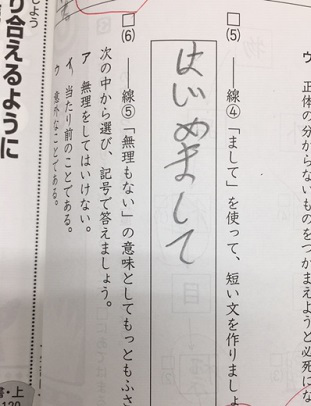 正体の分からないものをつかまえようと必死にな
□(5) ――線④「まして」を使って、短い文を作りましょ
はじめまして
□(6) ――線⑤「無理もない」の意味としてもっともふさ
次の中から選び、記号で答えましょう。
ア 無理をしてはいけない。
イ 当たり前のことである。
ウ 意外なことである。
り合えるように